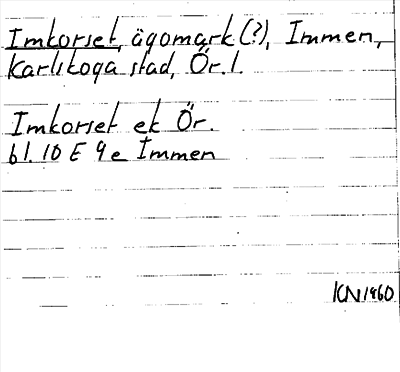 Imkorset, ägomark (?), Immen,
Karlskoga stad, Ör. l.
Imkorset ek Ör.
bl. 10 E 9 e Immen
KN 1960